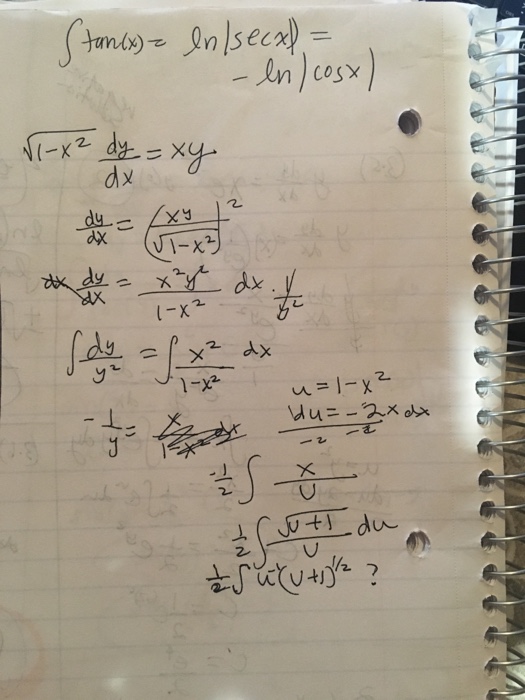 ∫tan(x) = ln|secx| =
- ln|cosx|
√1-x² dy/dx = xy
dy/dx = (xy/√1-x²)²
dy/dx = x²y²/1-x² dx · 1/y²
∫dy/y² = ∫x²/1-x² dx
u = 1-x²
-1/y = x
du = -2x dx
-2 -2
-1/2 ∫ x/u
1/2 ∫ √u+1/u du
1/2 ∫ u⁻¹(u+1)^1/2 ?